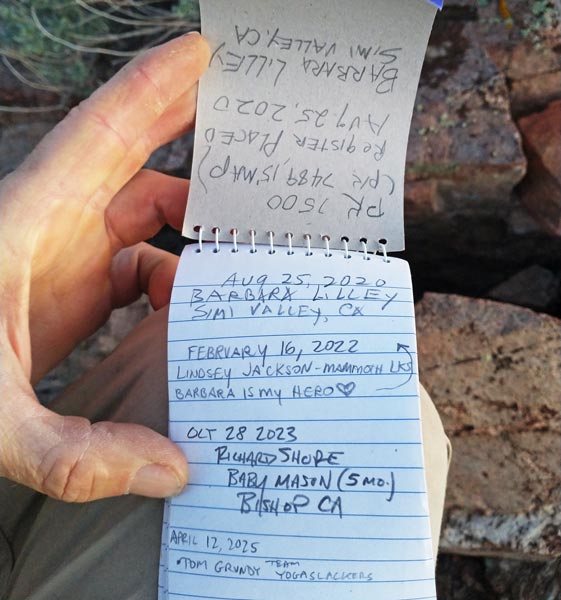 PK 7500
(PK 7489, 15' MAP)
REGISTER PLACED
AUG 25, 2020
BARBARA LILLEY
SIMI VALLEY, CA
AUG 25, 2020
BARBARA LILLEY
SIMI VALLEY, CA
FEBRUARY 16, 2022
LINDSEY JACKSON - MAMMOTH LKS
BARBARA IS MY HERO♡
OCT 28 2023
RICHARD SHORE
BABY MASON (5 MO.)
BISHOP CA
APRIL 12, 2025
•TOM GRUNDY TEAM YOGASLACKERS